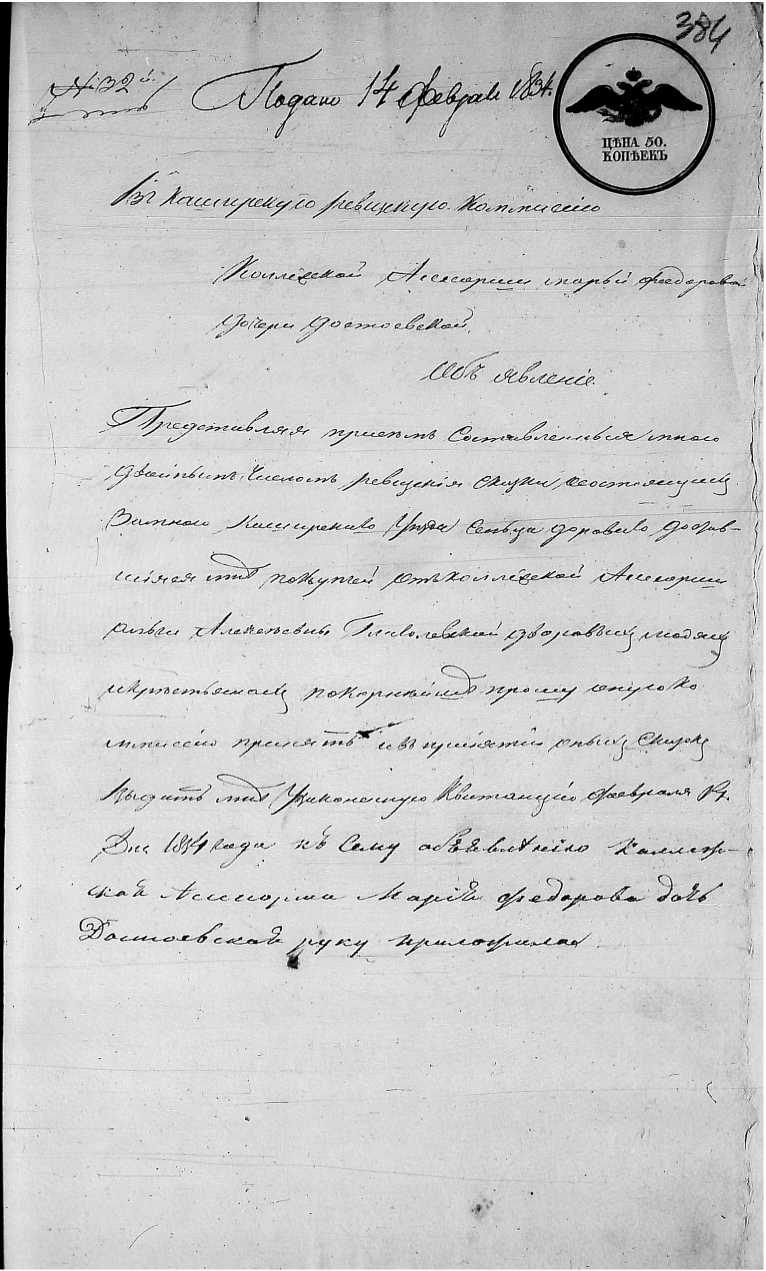 384
№ 32й
Подано 14 Февраля 1834.
ЦѢНА 50.
КОПѢЕКЪ
Въ Каширскую ревизскую Коммисiю
Коллежской Асесорши марьи Федоровой
дочери достоевской.
Объявленiе.
Представляя приемъ Составленныя мною
двойнымъ числомъ ревизскiя сказки состоящимъ
замною Каширскаго Уѣзда Сельца дароваго достав-
шимся мнѣ покупкой отъ коллежской Асесорши
Алексѣевны дворовымъ людямъ
икрестьянамъ покорнѣйше прошу оную ко
ммиссiю принять ивъ принятiи оныхъ Сказокъ
Выдать мнѣ Узаконенную Квитанцiю февраля
Дня 1834 года къ Сему объявленiю Коллеж-
ская Асесорша Марiя Федорова дочь
Достоевская руку приложила